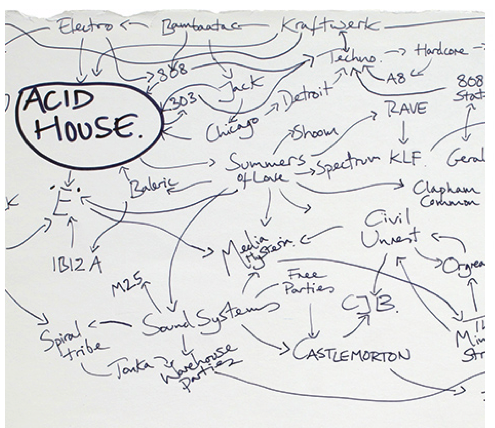 Electro
Bambaataa
Kraftwerk
808
Techno.
Hardcore
ACID
HOUSE.
303
Jack
Detroit
A8
808
Stat
Chicago
RAVE
Shoom
Summers
of Love
Spectrum
KLF.
Geral
Baleric
Clapham
Common
'E'
Media
Hysteria.
Civil
Unrest
IBIZA
Orgrea
M25
Free
Parties
CJB.
Spiral
tribe
Sound Systems
Mi
Str
Tonka
Warehouse
Parties
CASTLEMORTON